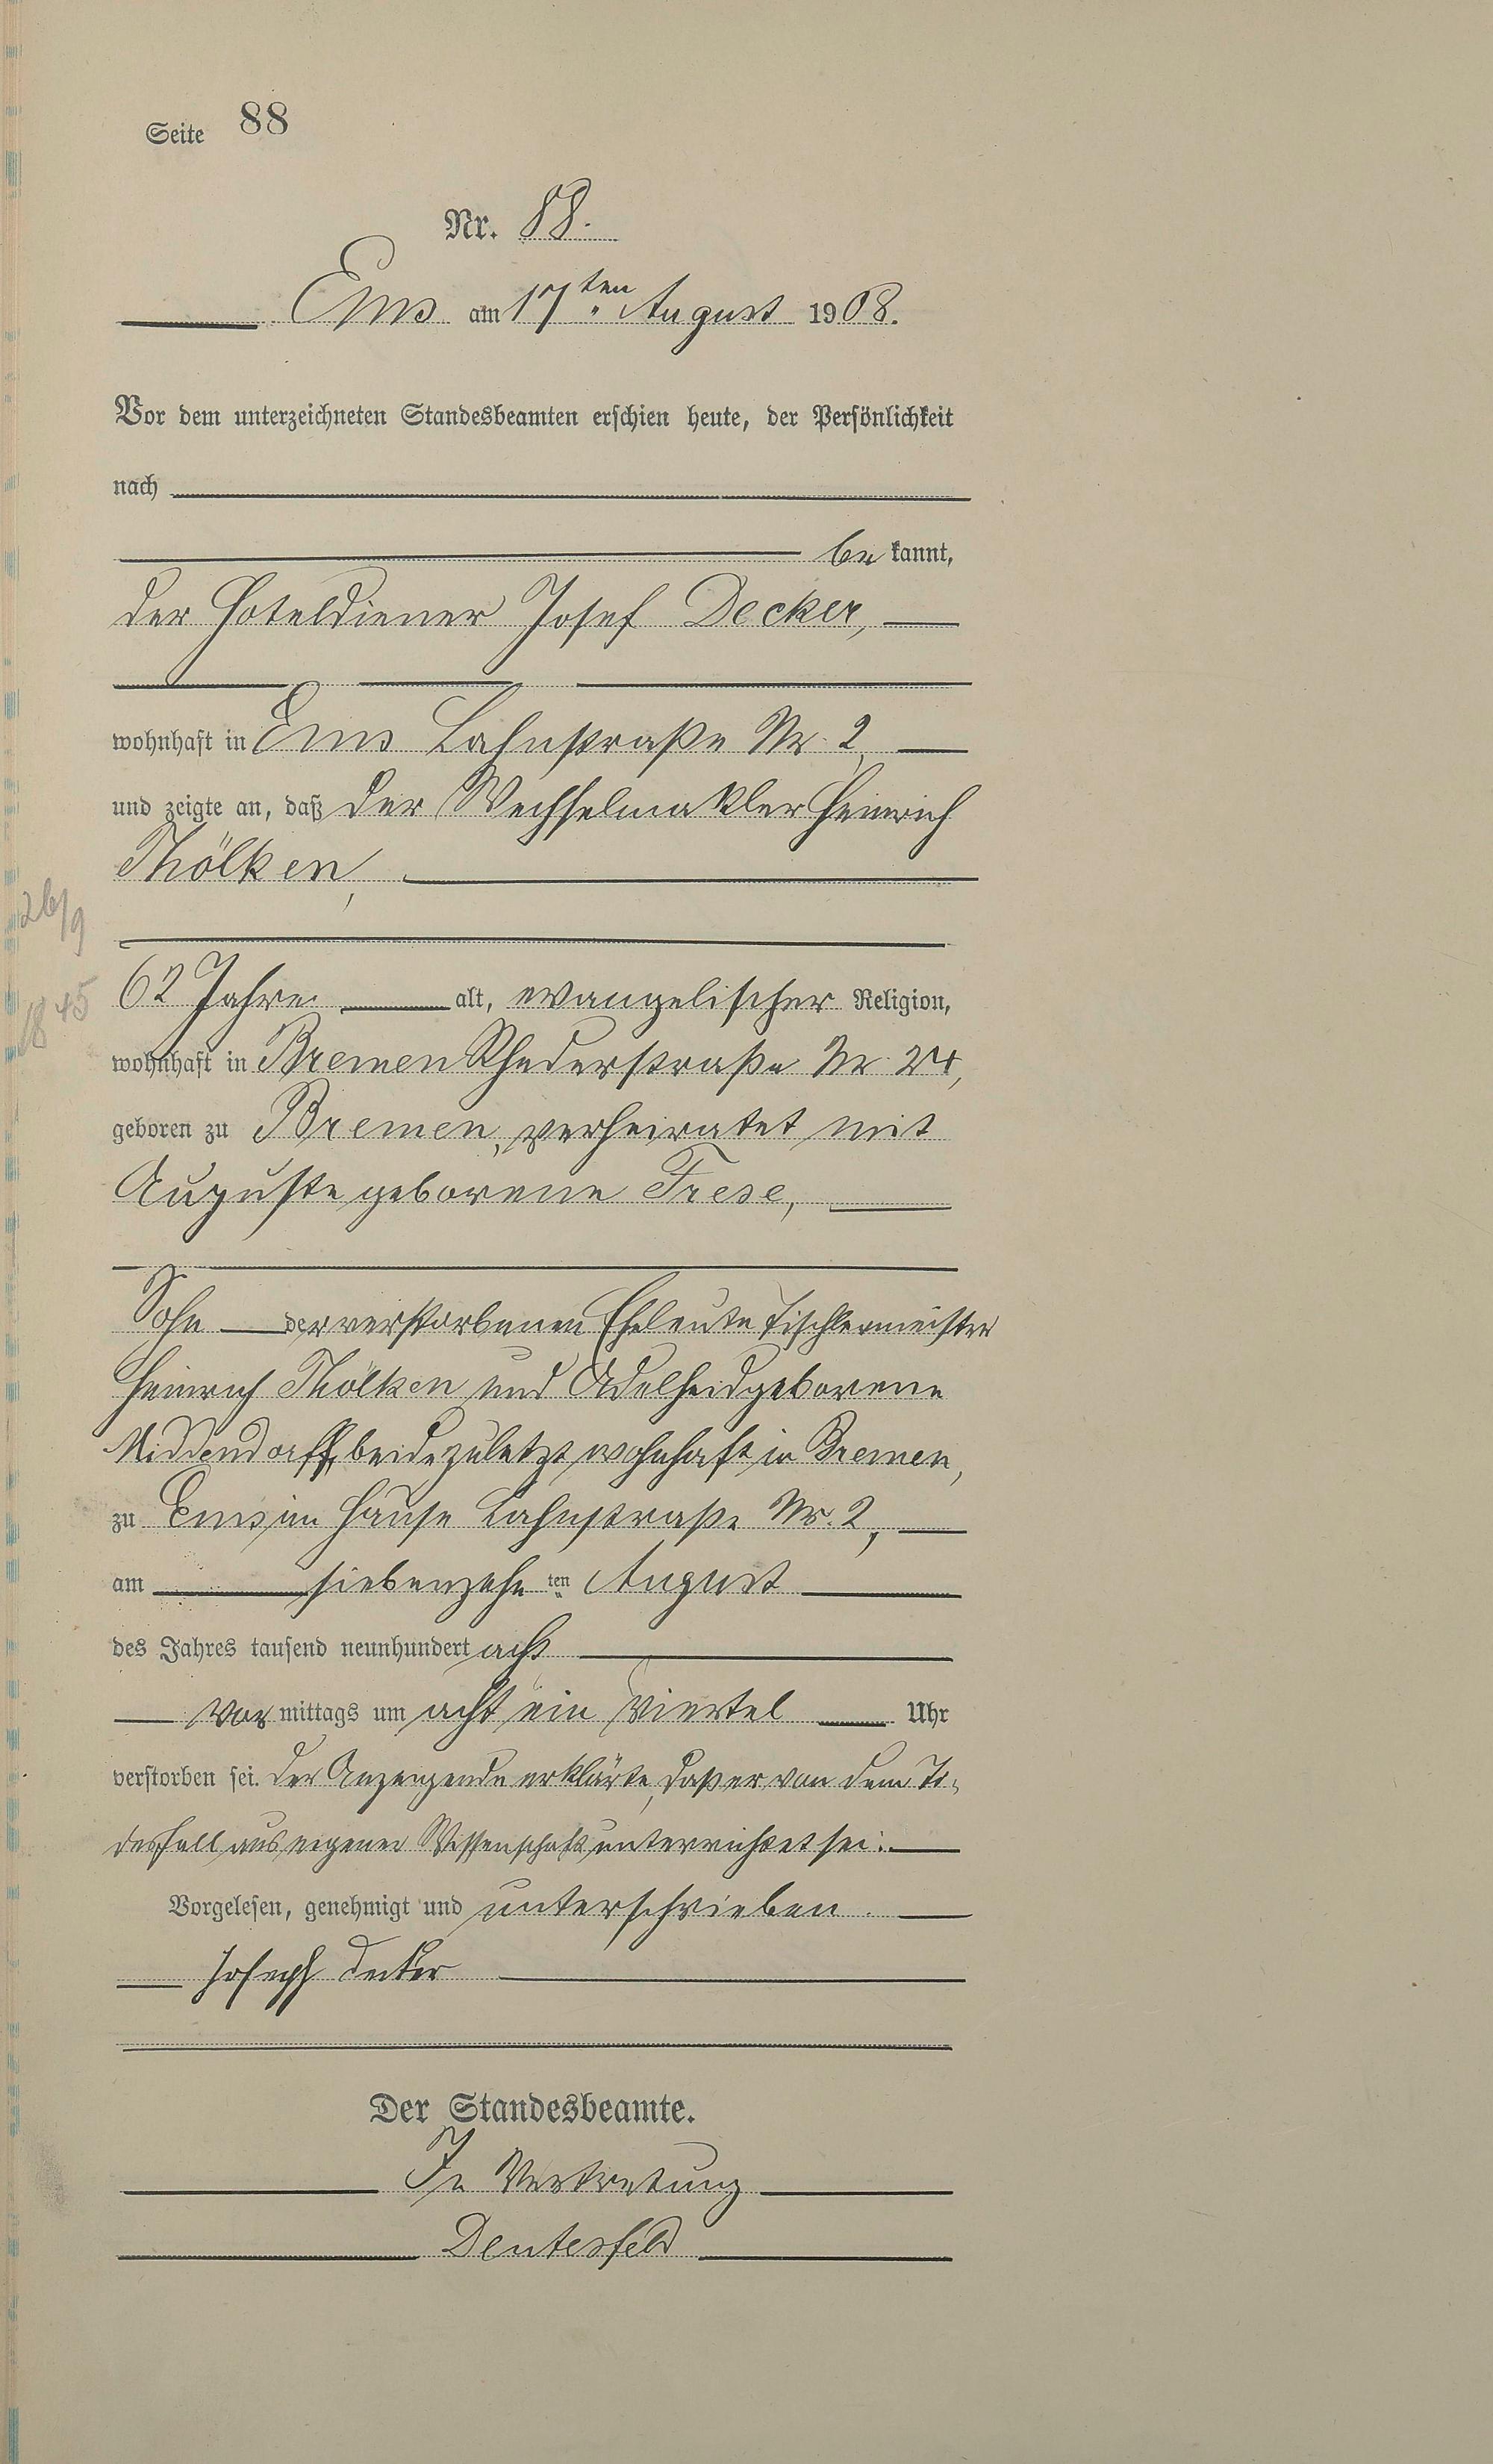 Seite 88
Nr. 88.
Ems am 17ten August 1908.
Vor dem unterzeichneten Standesbeamten erschien heute, der Persönlichkeit
nach
be kannt,
der Hoteldiener Josef Decker,
wohnhaft in Ems Lahnstraße Nr. 2,
und zeigte an, daß der Wechselmakler Heinrich
Thölken,
26/9
62 Jahre alt, evangelischer Religion,
1845
wohnhaft in Bremen Rhederstraße Nr. 24,
geboren zu Bremen, verheiratet mit
Auguste geborene Frese,
Sohn der verstorbenen Eheleute Tischlermeister
Heinrich Thölken und Adelheid geborene
Middendorff, beide zuletzt wohnhaft in Bremen,
zu Ems im Hause Lahnstraße Nr. 2,
am siebenzehn ten August
des Jahres tausend neunhundert acht
Vor mittags um acht ein Viertel Uhr
verstorben sei. Der Anzeigende erklärte, daß er von dem To-
desfall aus eigener Wissenschaft unterrichtet sei.
Vorgelesen, genehmigt und unterschrieben.
Joseph Decker
Der Standesbeamte.
In Vertretung